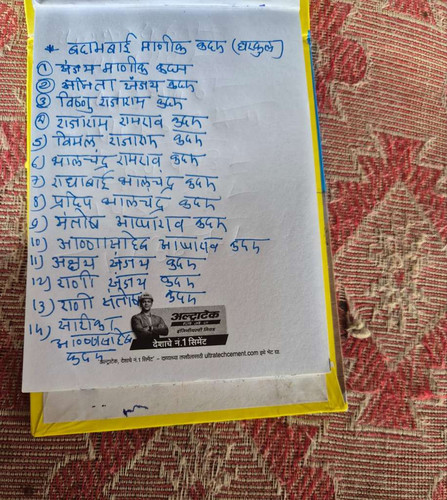 * बदामबाई माणीक कदम (घरकुल)
१) संजय माणीक कदम
२) अनिता संजय कदम
३) विष्णु राजाराम कदम
४) राजाराम रामराव कदम
5) विमल राजाराम कदम
6) भालचंद्र रामराव कदम
7) राधाबाई भालचंद्र कदम
8) प्रदिप भालचंद्र कदम
9) संतोष आप्पाराव कदम
10) आण्णासाहेब आप्पाराव कदम
11) अक्षय संजय कदम
12) राणी संजय कदम
13) राणी संतोष कदम
14) सारीका
आण्णासाहेब
कदम
अल्ट्राटेक
सिमेंट
इंजिनीयरची निवड
देशाचे नं.1 सिमेंट
अल्ट्राटेक, देशाचे नं.1 सिमेंट - ultratechcement.com